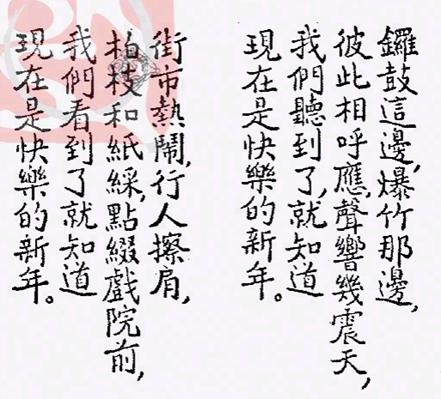 鑼鼓這邊,爆竹那邊,
彼此相呼應,聲響幾震天,
我們聽到了,就知道
現在是快樂的新年。
街市熱鬧,行人擦肩,
柏枝和紙綵,點綴戲院前,
我們看到了就知道
現在是快樂的新年。